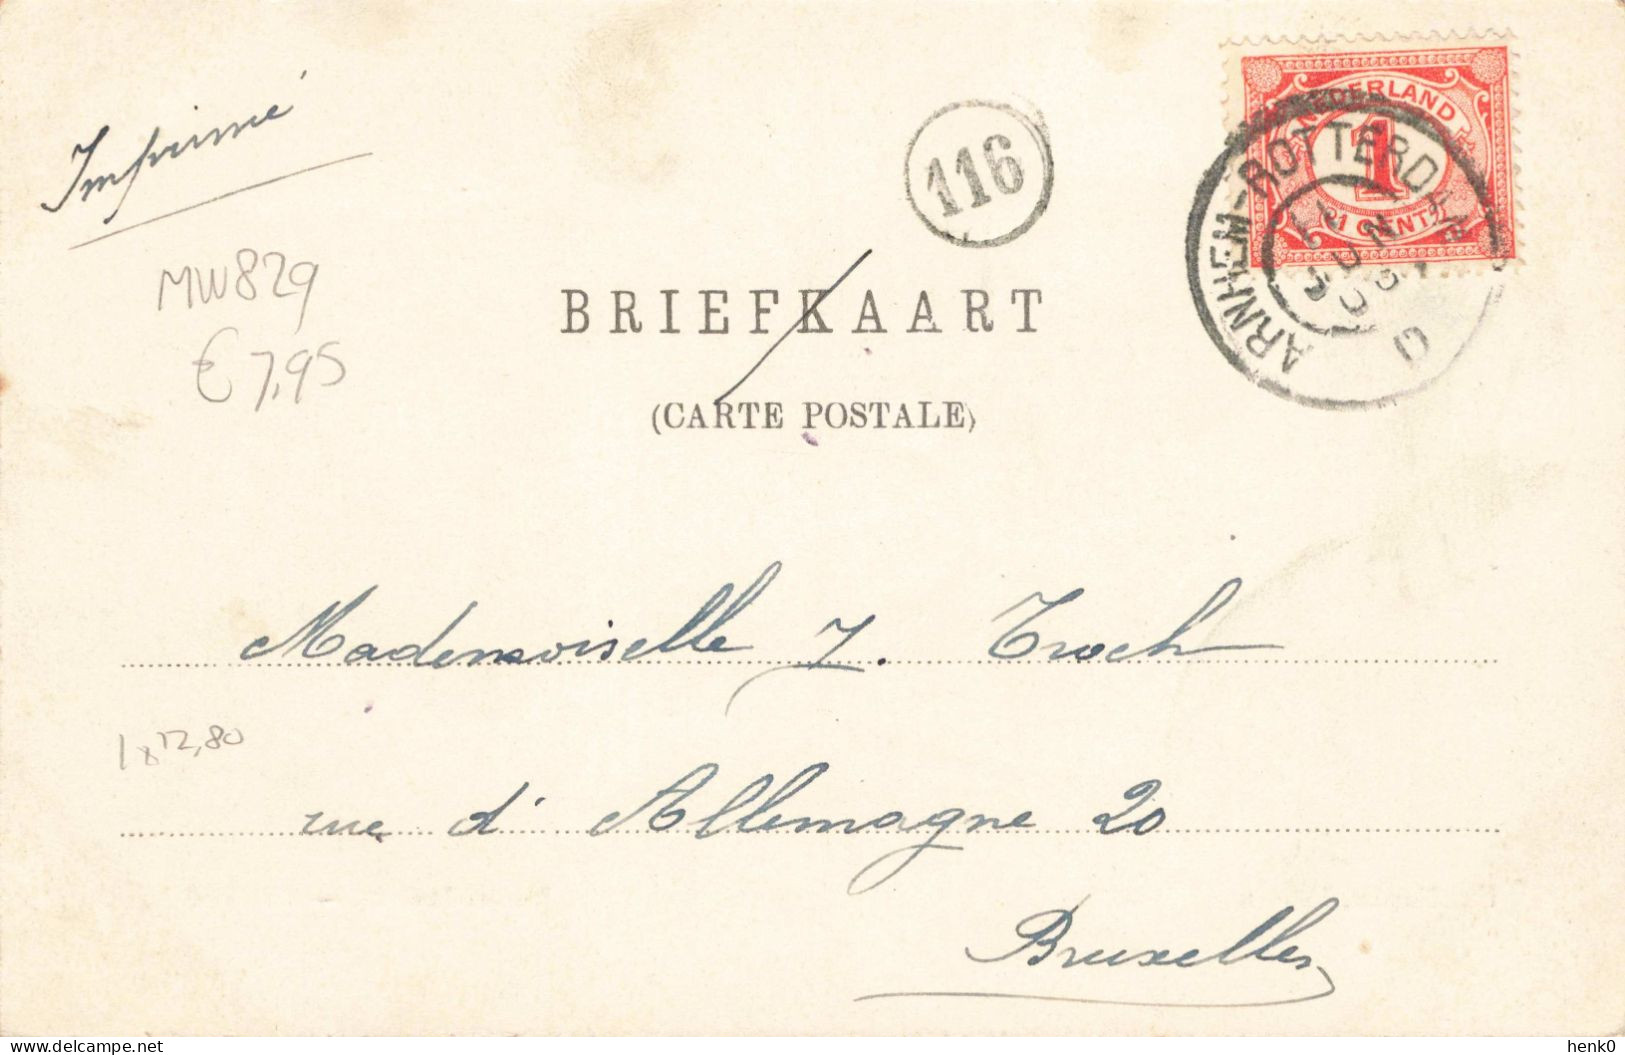 Imprimé
116
NEDERLAND
1
1 CENT
ARNHEM-ROTTERDAM
D
MW829
€ 7,95
BRIEFKAART
(CARTE POSTALE)
Mademoiselle J. Troch
1 x 12,80
rue d'Allemagne 20
Bruxelles
delcampe.net
henk0